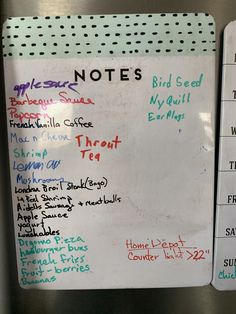 NOTES
applesauce
Barbeque Sauce
Popcorn
French Vanilla Coffee
Mac n Cheese
Shrimp
Lemon
Mushrooms
London Broil Steak (Bogo)
Shrimp
Sausage + meatballs
Apple Sauce
yogurt
Lunchables
Pizza
hamburger buns
French Fries
Fruit - berries
Bananas
Throat
Tea
Bird Seed
NyQuill
Ear Plugs
Home Depot
Counter >22"